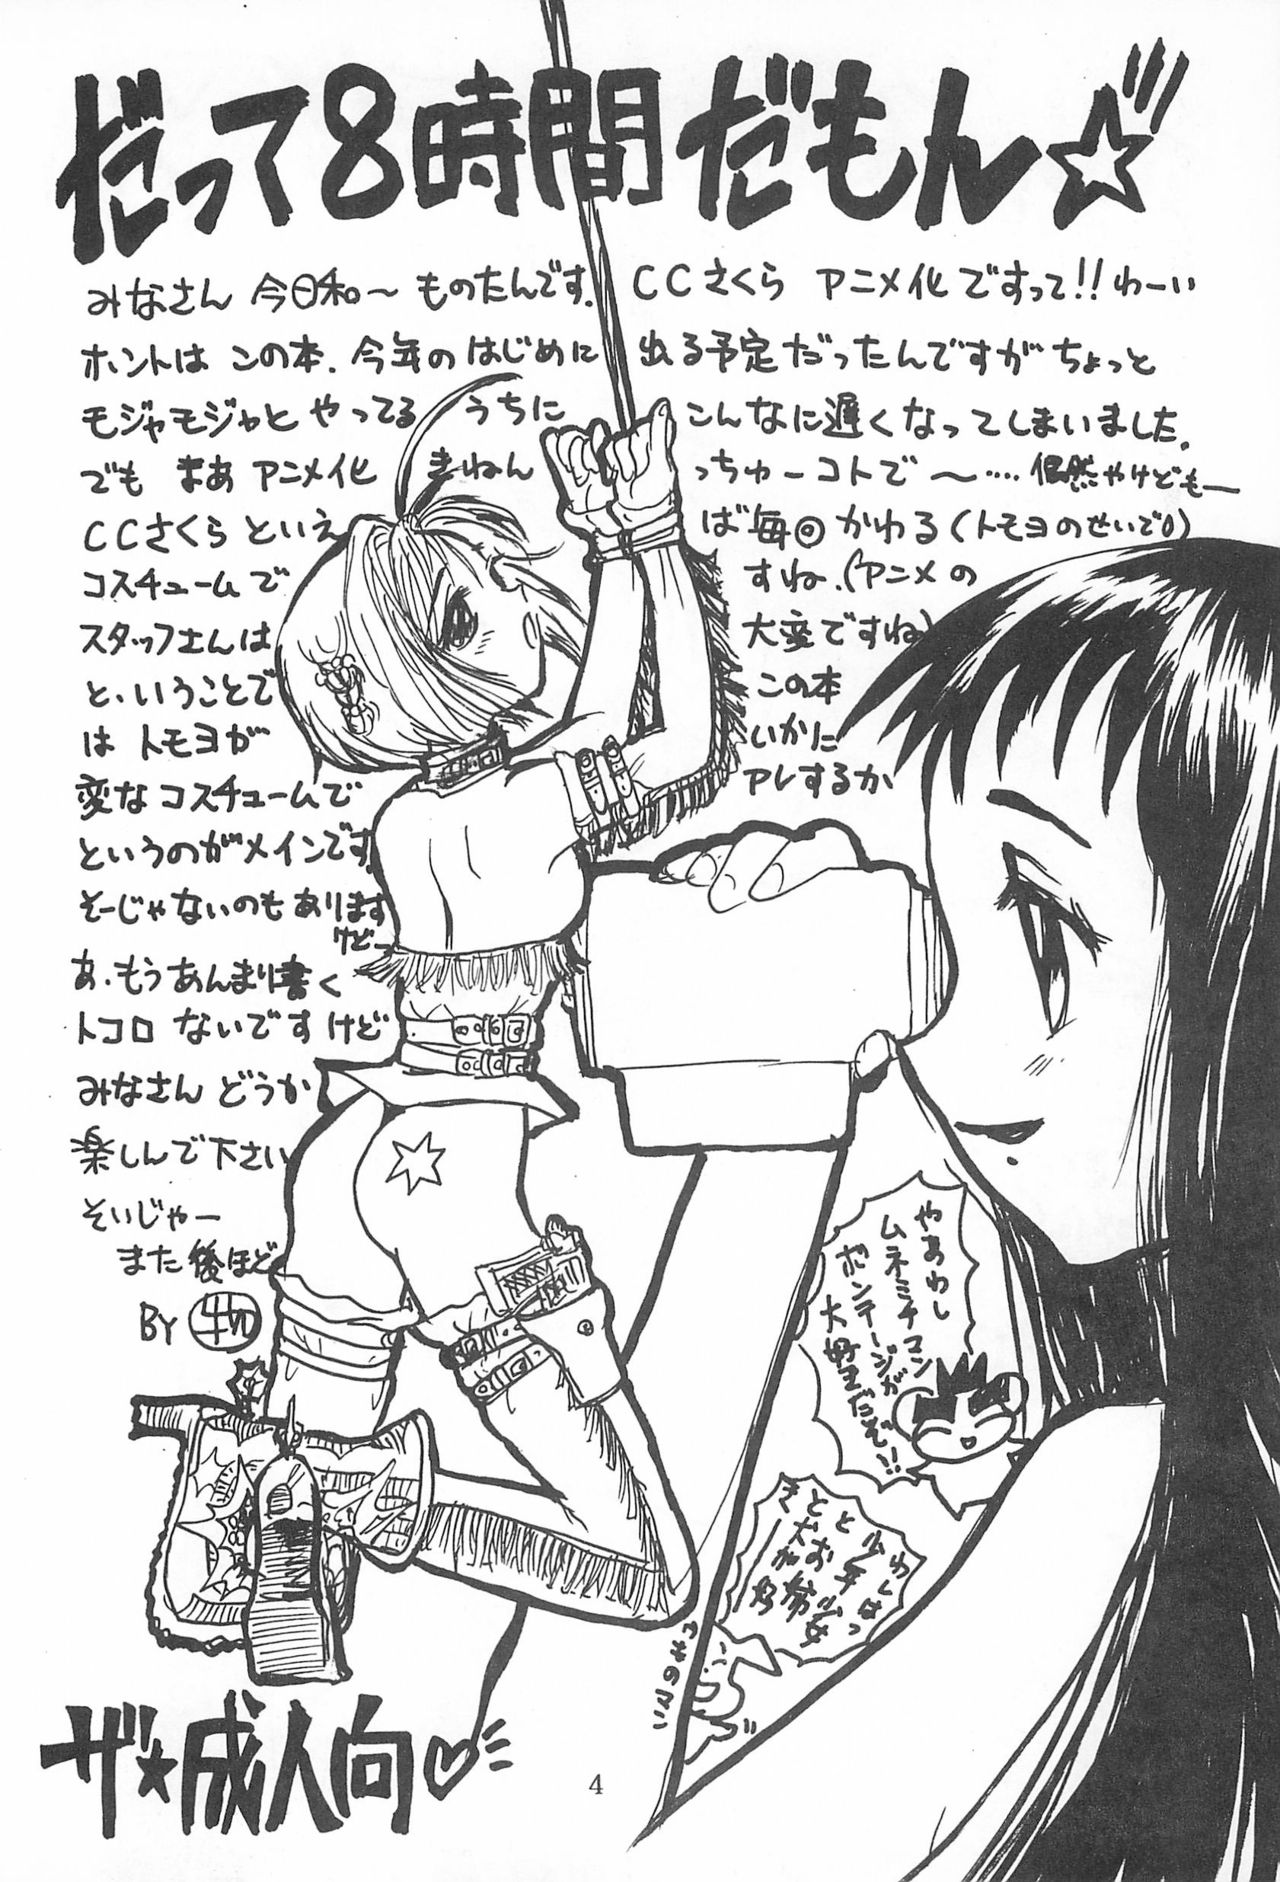 だって8時間だもん☆
みなさん 今日和〜 ものたんです. CCさくら アニメ化ですって!! わーい
ホントは この本. 今年のはじめに 出る予定だったんですがちょっと
モジャモジャとやってるうちに こんなに遅くなってしまいました.
でも まあ アニメ化 きねん っちゅーコトで 〜‥‥ 偶然やけども―
CCさくら といえ ば毎回かわる(トモヨのせいで)
コスチュームで すね.(アニメの
スタッフさんは 大変ですね)
と、いうことで この本
は トモヨが いかに
変な コスチュームで アレするか
というのがメインです.
そーじゃないのもあります
けどー
あ.もうあんまり書く
トコロ ないですけど
みなさん どうか
楽しんで下さい
そいじゃー
また後ほど
BY
やあわし
ムネミチコン
ボンテージが
大好きだぞ!!
わしはっ
少年少女
とお
ザ★成人向♡
4